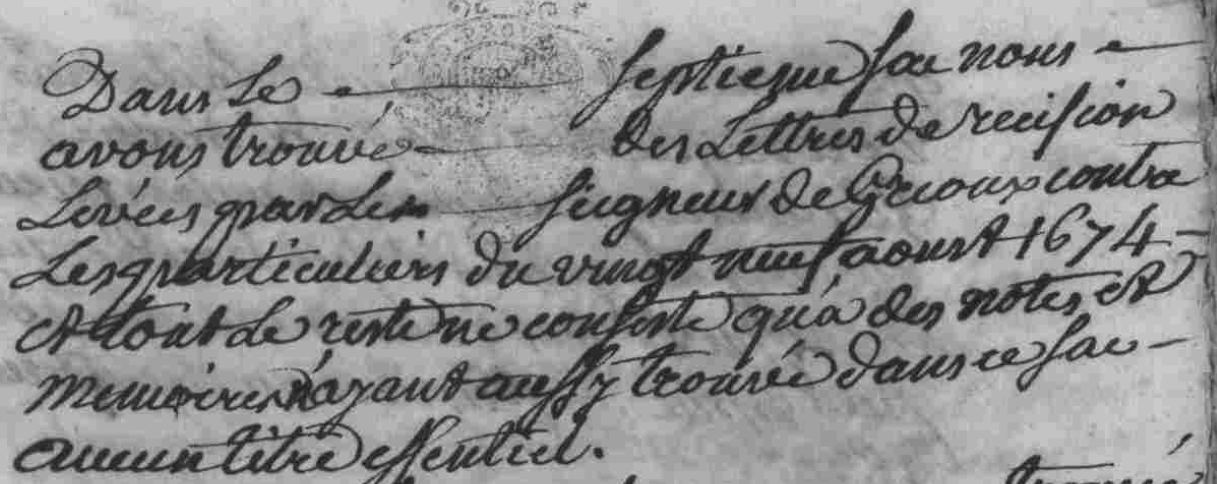 Dans Le septiesme sac nous
avons trouvé des Lettres de recision
Levées par Les seigneur de Greoux contre
Les particuliers du vingt neuf aoust 1674
et tout Le reste ne consiste qu'a des notes et
memoires n'ayant aussy trouvée dans ce sac
aucun titre essentiel.
trouvé